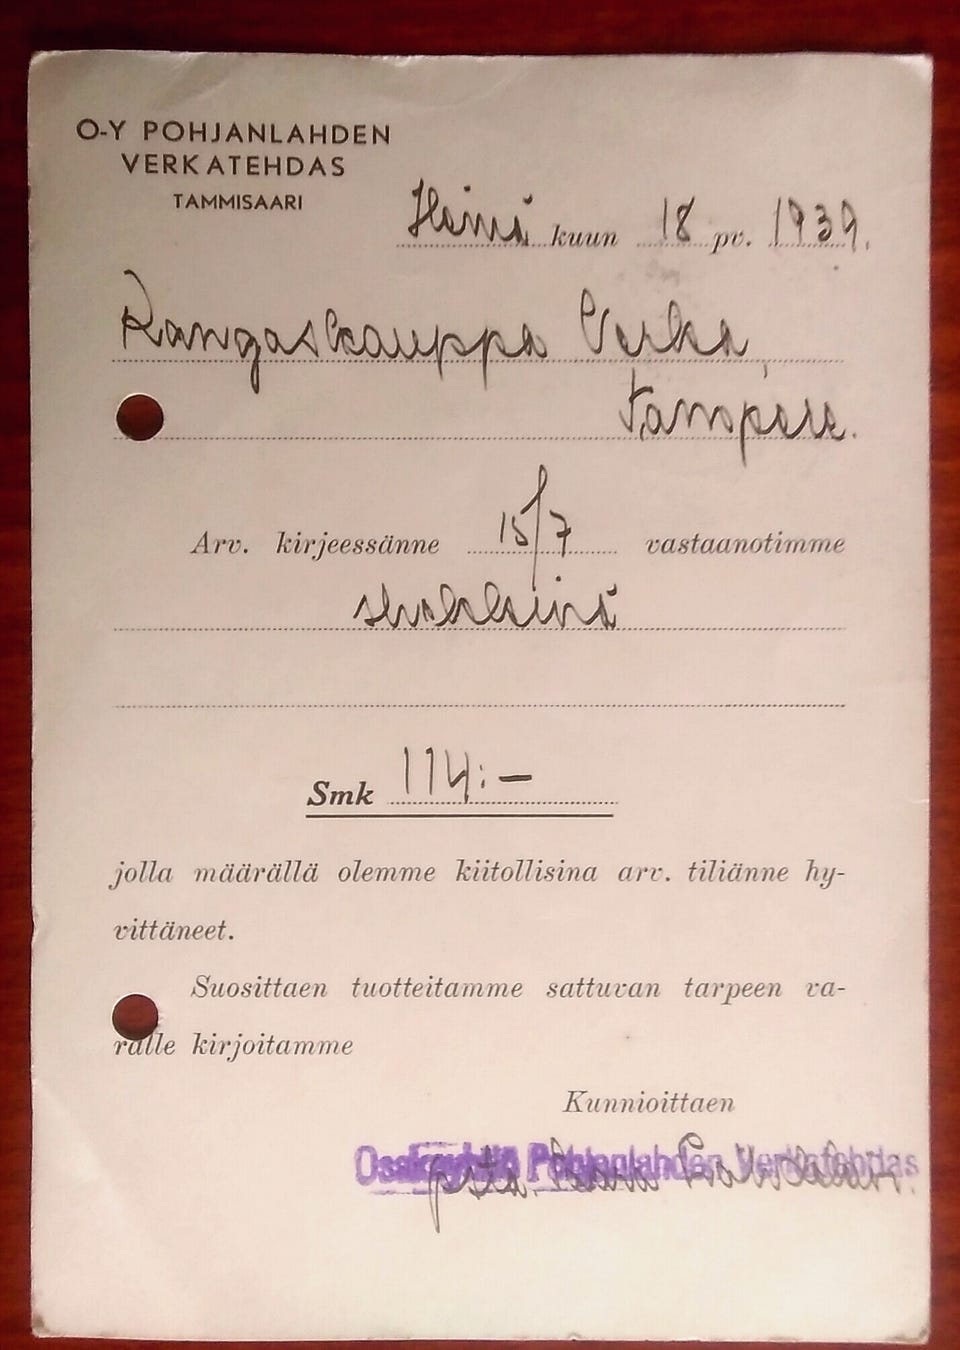 O-Y POHJANLAHDEN
VERKATEHDAS
TAMMISAARI
Heinä kuun 18 pv. 1939.
Kangaskauppa Verka,
Tampere.
Arv. kirjeessänne 15/7 vastaanotimme
shekkinä
Smk 114:—
jolla määrällä olemme kiitollisina arv. tiliänne hy-
vittäneet.
Suosittaen tuotteitamme sattuvan tarpeen va-
ralle kirjoitamme
Kunnioittaen
Pohjanlahden Verkatehdas